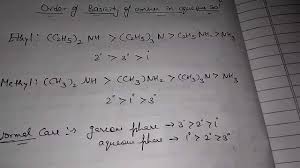 Order of Basicity of amines in aqueous soln
Ethyl: (C2H5)2 NH > (C2H5)3 N > C2H5 NH2 > NH3
2° > 3° > 1°
Methyl: (CH3)2 NH > (CH3)NH2 > (CH3)3N > NH3
2° > 1° > 3°
Normal Case :- gaseous phase → 3° > 2° > 1°
aqueous phase → 1° > 2° > 3°